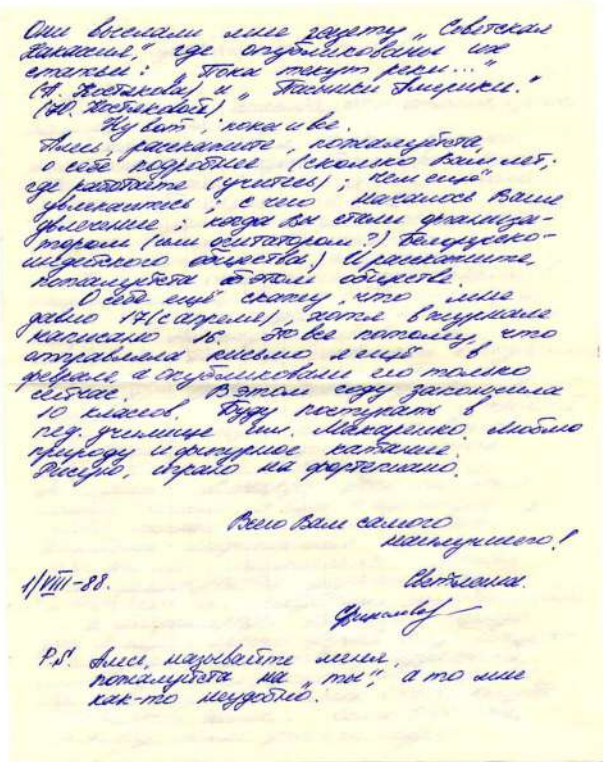 Они выслали мне газету „Советская
Хакасия", где опубликованы их
статьи: „Пока текут реки..."
(А. Костякова) и „Пасынки Америки."
(Ю. Костяковой)
Ну вот, пока и все.
Алесь, расскажите, пожалуйста,
о себе подробнее (сколько Вам лет;
где работаете (учитесь); чем ещё
увлекаетесь; с чего началось Ваше
увлечение; когда Вы стали организа-
тором (или  ?) Белорусско-
индейского общества.) И расскажите,
пожалуйста об этом обществе.
О себе ещё скажу, что мне
давно 17 (с апреля), хотя в журнале
написано 16. Это все потому, что
отправляла письмо я ещё в
феврале, а опубликовали его только
сейчас. В этом году закончила
10 классов. Буду поступать в
пед. училище им. Макаренко. Люблю
природу и фигурное катание.
Рисую, играю на фортепиано.
Всего Вам самого
наилучшего!
1/VIII-88. Светлана.
P.S. Алесь, называйте меня,
пожалуйста на „ты", а то мне
как-то неудобно.